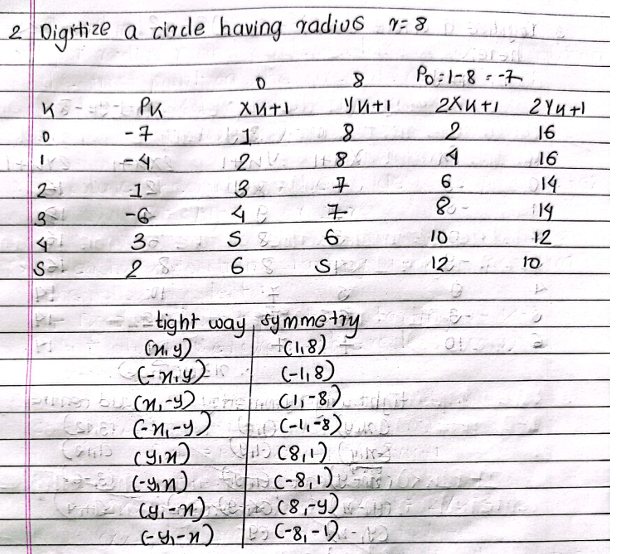 2 Digitize a circle having radius r=8
0 8 P0=1-8=-7
K PK XK+1 YK+1 2XK+1 2YK+1
0 -7 1 8 2 16
1 -4 2 8 4 16
2 1 3 7 6 14
3 -6 4 7 8 14
4 3 5 6 10 12
5 2 6 5 12 10
tight way symmetry
(x,y) (1,8)
(-x,y) (-1,8)
(x,-y) (1,-8)
(-x,-y) (-1,-8)
(y,x) (8,1)
(-y,x) (-8,1)
(y,-x) (8,-y)
(-y,-x) (-8,-1)